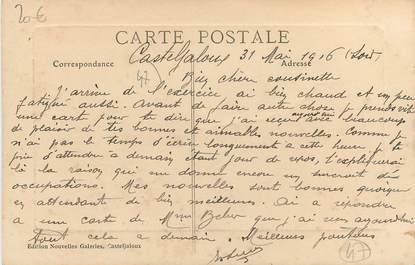 20 €
CARTE POSTALE
Correspondance
Adresse
Casteljaloux 31 Mai 1916 (Soir)
47
Bien chère cousinette
J'arrive de l'exercice ai bien chaud et un peu
fatigué aussi. Avant de faire autre chose je prends vite
une carte pour te dire que j'ai reçu avec beaucoup
aujourd'hui
de plaisir de tes bonnes et aimables nouvelles. Comme je
n'ai pas le temps d'écrire longuement a cette heure je te
prie d'attendre a demain étant jour de repos, t'expliquerai
là la raison qui me donne encore un surcroit des
occupations. Mes nouvelles sont bonnes quoique
en attendant de bien meilleures. Ai a repondre
a une carte de Mme que j'ai reçu aujourd'hui
tout cela a demain. Meilleures
Edition Nouvelles Galeries, Casteljaloux
47